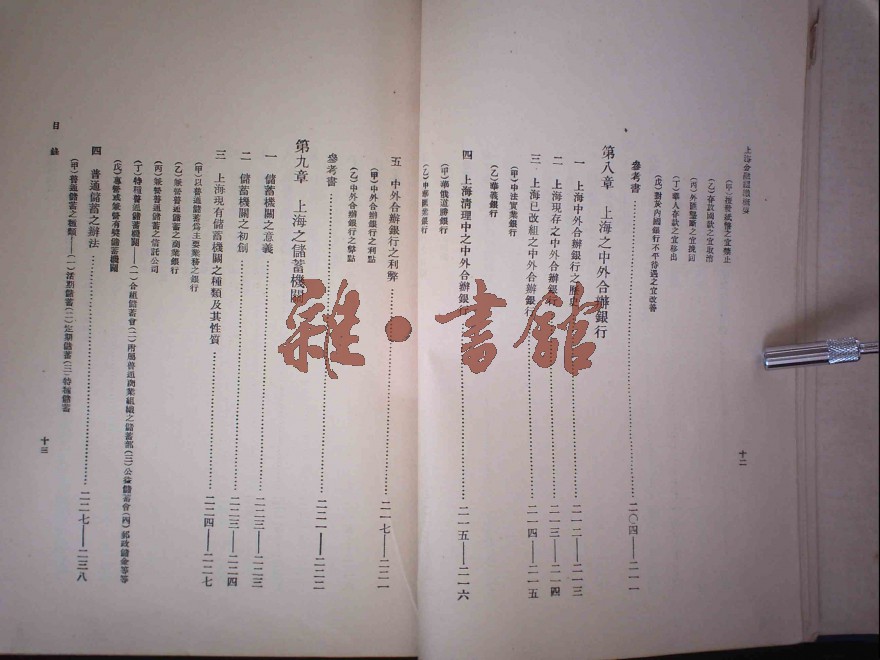 上海金融組織概要
(甲)接濟威權之宜禁止
(乙)存放國款之宜取消
(丙)外匯壟斷之宜挽回
(丁)華人存款之宜移出
(戊)對於內國銀行不平待遇之宜改善
參考書……二〇四—二一一
第八章 上海之中外合辦銀行
一 中外合辦銀行之歷史……二一二—二一三
二 上海現存之中外合辦銀行……二一三—二一四
三 上海已改組之中外合辦銀行……二一四—二一五
(甲)中法實業銀行
(乙)華義銀行
四 上海清理中之中外合辦銀行……二一五—二一六
(甲)華俄道勝銀行
(乙)中華匯業銀行
十二
五 中外合辦銀行之利弊……二一七—二二一
(甲)中外合辦銀行之利點
(乙)中外合辦銀行之弊點
參考書……二二一—二二二
第九章 上海之儲蓄機關
一 儲蓄機關之意義……二二三—二二三
二 儲蓄機關之初創……二二三—二二四
三 上海現有儲蓄機關之種類及其性質……二二四—二二七
(甲)以普通儲蓄爲主要業務之銀行
(乙)兼營普通儲蓄之商業銀行
(丙)兼營普通儲蓄之信託公司
(丁)特種普通儲蓄機關——(一)合組儲蓄會(二)附屬普通商業組織之儲蓄部(三)公益儲蓄會(四)郵政儲金等等
(戊)專營或兼營有獎儲蓄機關
四 普通儲蓄之辦法……二二七—二三八
(甲)普通儲蓄之種類——(一)活期儲蓄(二)定期儲蓄(三)特種儲蓄
目錄
十三
雜·書館